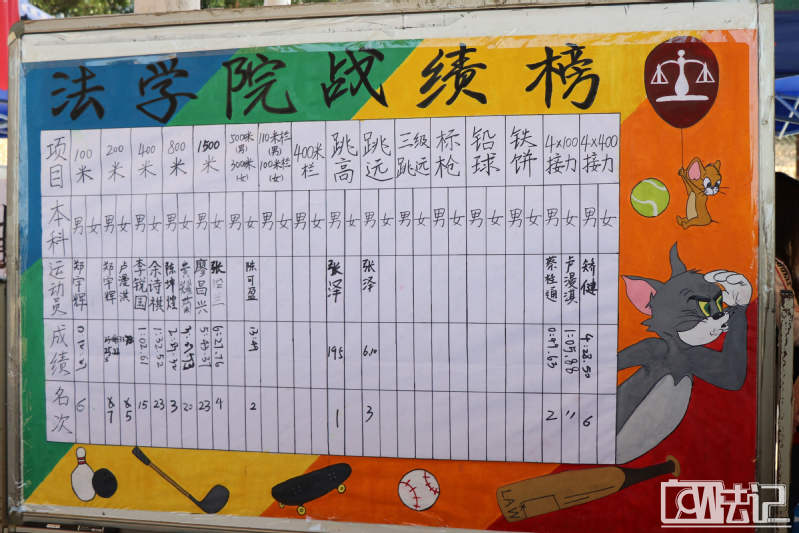 法学院战绩榜
项目 100米 200米 400米 800米 1500米 5000米(男) 3000米(女) 110米栏(男) 100米栏(女) 400米栏 跳高 跳远 三级跳远 标枪 铅球 铁饼 4×100接力 4×400接力
本科 男 女 男 女 男 女 男 女 男 女 男 女 男 女 男 女 男 女 男 女 男 女 男 女 男 女 男 女 男 女
运动员 郑宇辉 郑宇辉 卢漫淇 李锐国 余诗棋 陈坤煌 廖昌兴 张 陈可盈 张泽 张泽 蔡桂通 卢漫淇 矫健
成绩 1:02.61 1:32.52 5:49.37 6:21.76 195 6.10 0:49.63 1:05.88 4:28.50
名次 6 7 5 15 23 3 20 23 4 2 1 3 2 11 6
LAW
法记